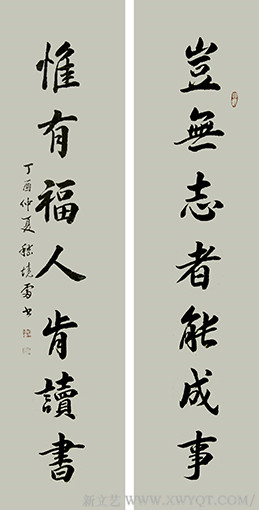 豈無志者能成事
惟有福人肯讀書
丁酉仲夏
新文艺 WWW.XWYQT.COM/